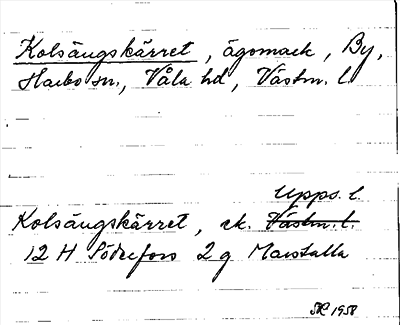 Kolsängskärret, ägomark, By,
Harbo sn., Våla hd, Västm. l.
Upps. l.
Kolsängskärret, ek. Västm. l.
12 H Söderfors 2 g Marstalla
1958